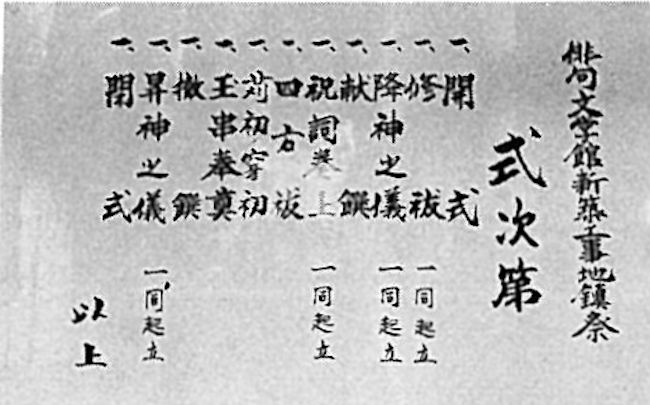 俳句文学館新築工事地鎮祭
式次第
一、開式
一、修祓 一同起立
一、降神之儀 一同起立
一、献饌
一、祝詞奏上 一同起立
一、四方祓
一、苅初穿初
一、玉串奉奠
一、撤饌
一、昇神之儀 一同起立
一、閉式
以上